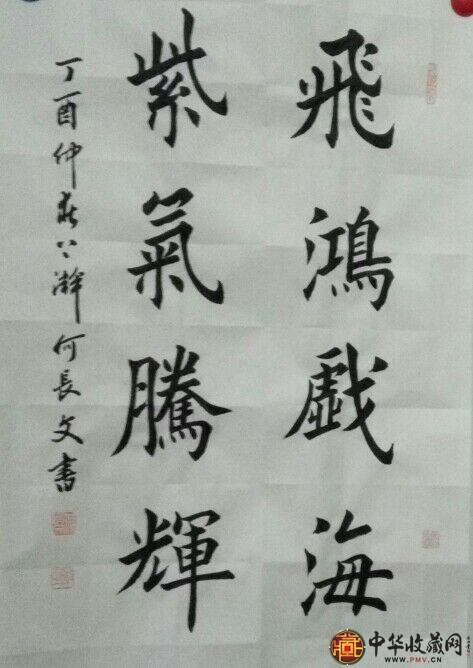 飛鴻戯海
紫氣騰輝
丁酉仲春上澣何長文書
中华收藏网
www.PMV.cn